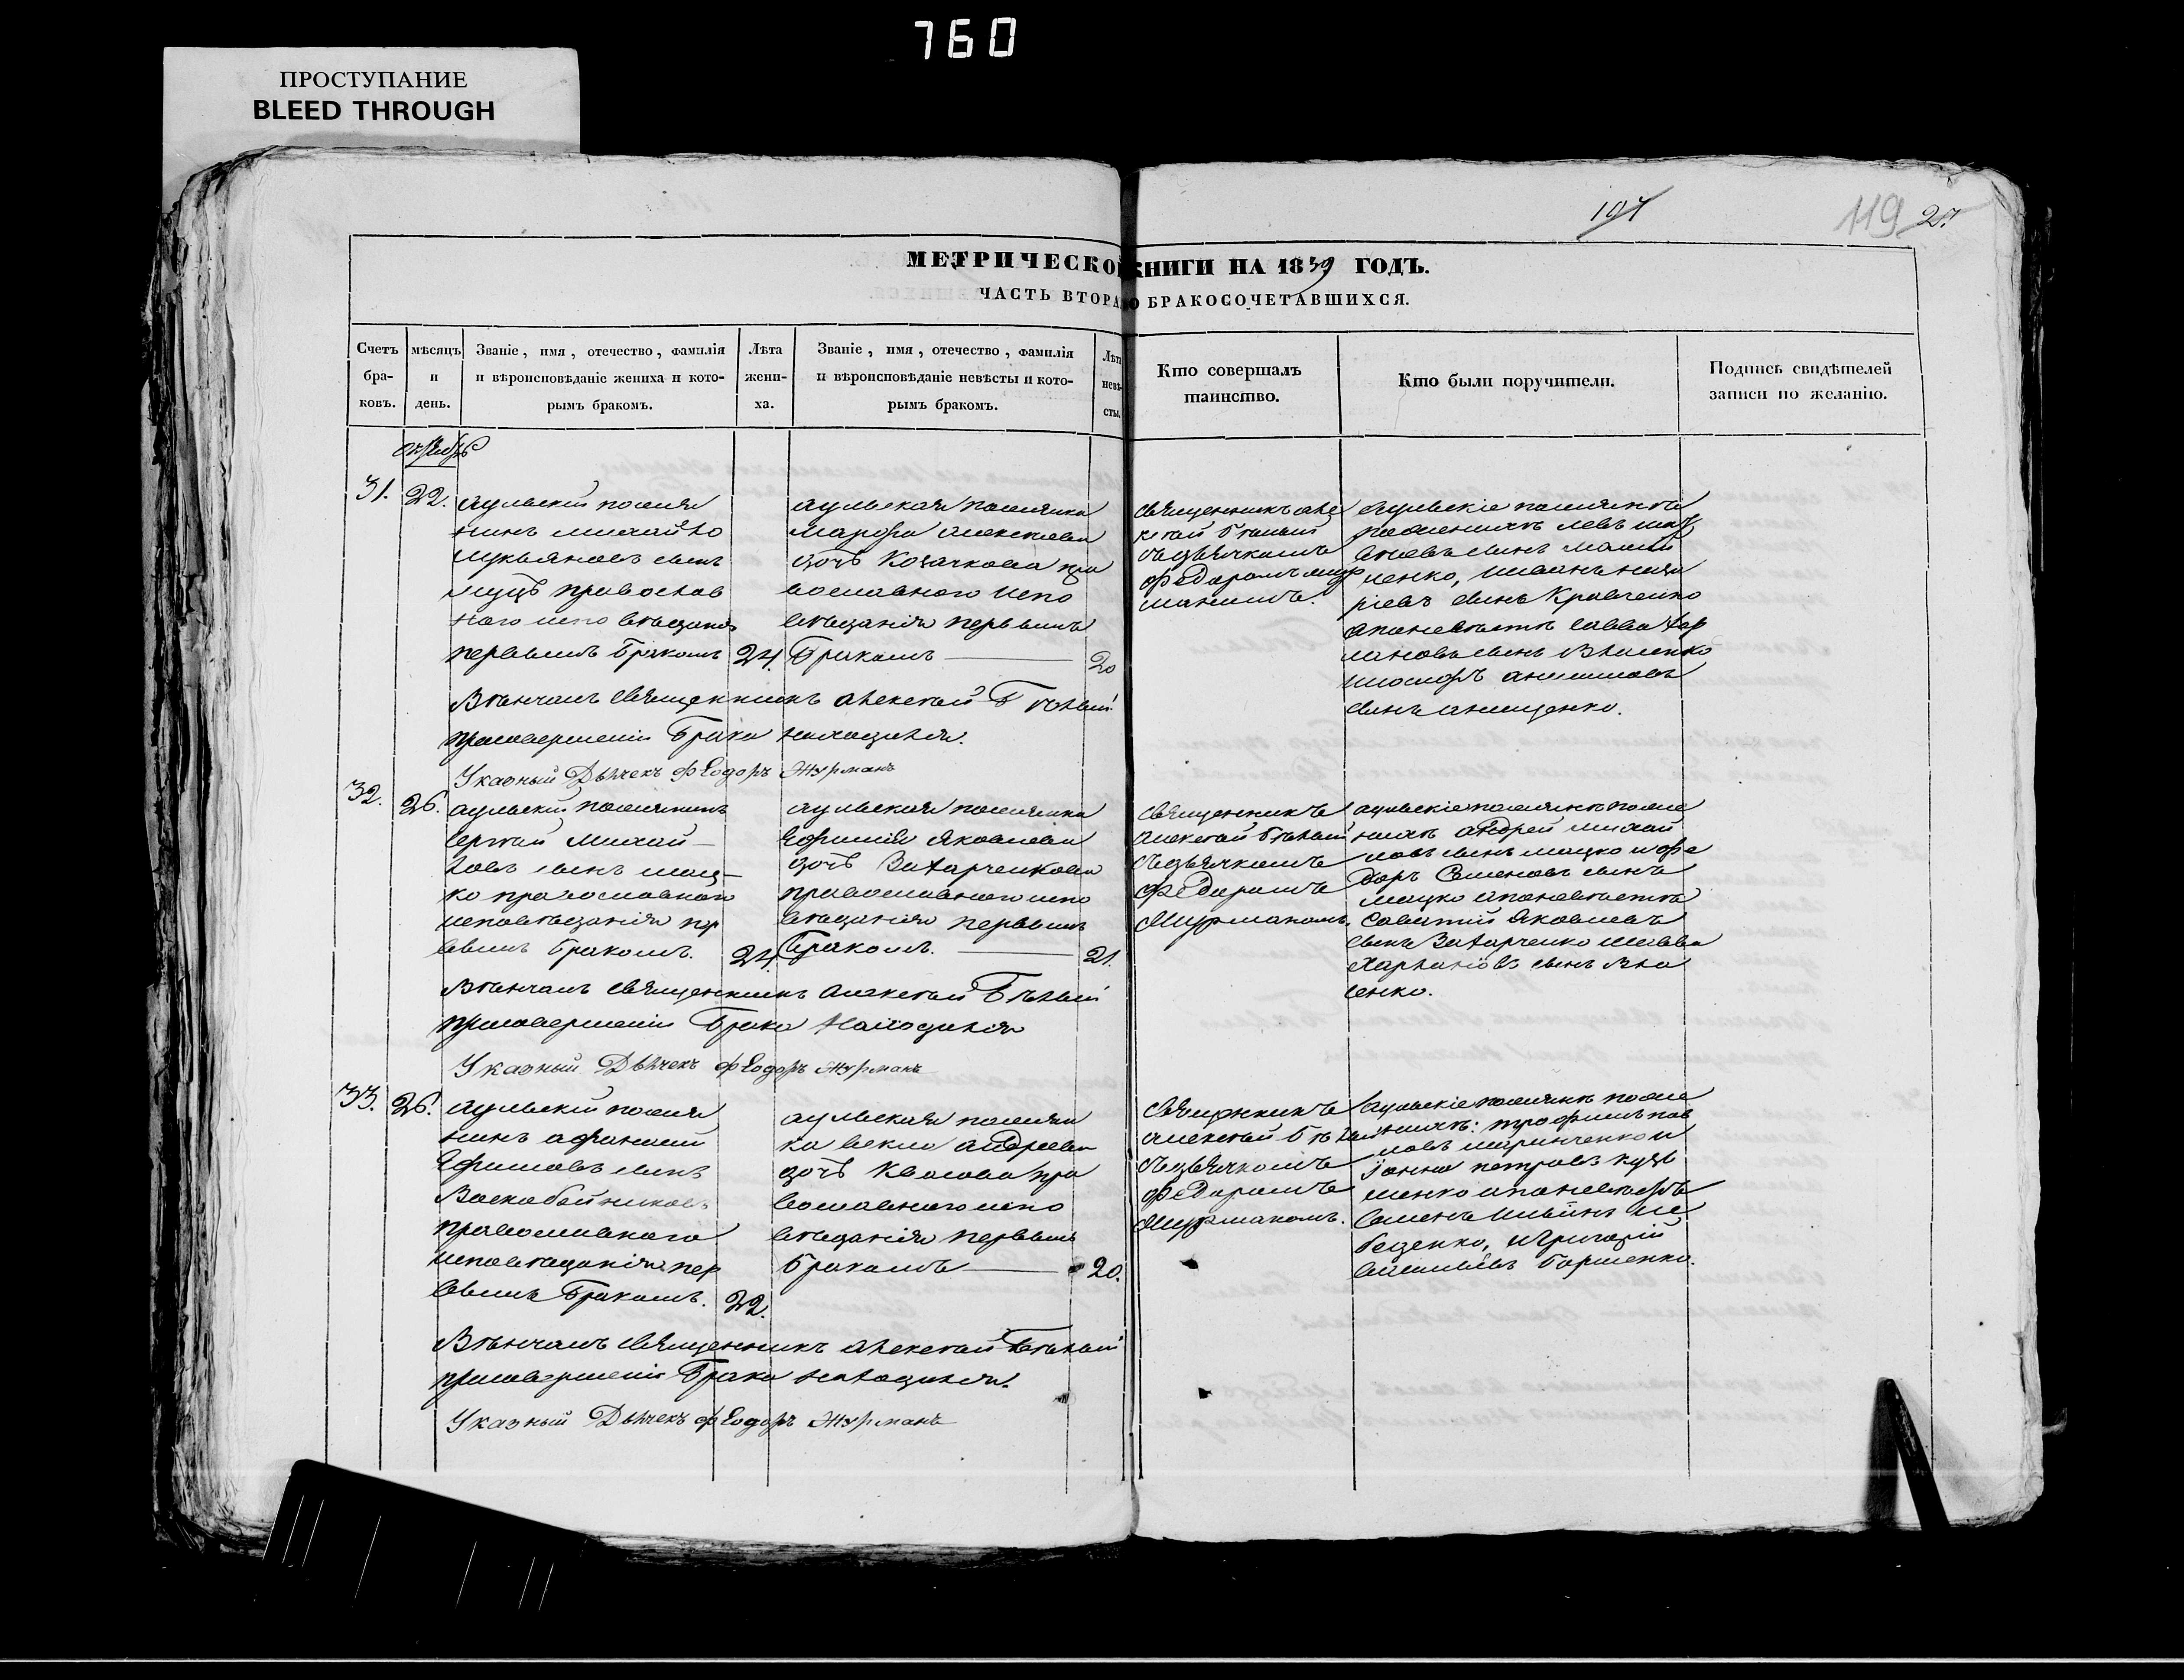 760
ПРОСТУПАНИЕ
BLEED THROUGH
119
27
МЕТРИЧЕСКОЙ КНИГИ НА 1839 ГОДЪ.
ЧАСТЬ ВТОРАЯ О БРАКОСОЧЕТАВШИХСЯ.
Счетъ бра-
ковъ.
мѣсяцъ
и
день.
Званіе, имя, отечество, фамилія
и вѣроисповѣданіе жениха и кото-
рымъ бракомъ.
Лѣта
жени-
ха.
Званіе, имя, отечество, фамилія
и вѣроисповѣданіе невѣсты и кото-
рымъ бракомъ.
Лѣта
невѣ-
сты.
Кто совершалъ
таинство.
Кто были поручители.
Подпись свидѣтелей
записи по желанію.
31.
22.
аульскій поселя
нинъ михайло
лукьяновъ сынъ
православ
ного испо вѣданія
первымъ бракомъ
24.
аульская поселянка
марфа алексіева
дочь Козачкова пра
вославного испо
вѣданія первымъ
бракомъ
20
священникъ але
ксѣй бѣлый
съ дьячкомъ
федоромъ
аульскіе поселяне
левъ
сынъ
иванъ
сынъ Кравченко
савва хар
лановъ сынъ Власенко
іосифъ анисимовъ
сынъ анищенко.
Вѣнчалъ священникъ алексѣй Бѣлый
присовершеніи брака находился.
Указный Дьячекъ феодоръ Журманъ
32.
26.
аульскій поселянинъ
сергѣй михай-
ловъ сынъ мац-
ко православного
исповѣданія пер
вымъ бракомъ.
24.
аульская поселянка
Ефимія Яковлева
дочь Захарченкова
православного испо
вѣданія первымъ
бракомъ.
21.
священникъ
алексѣй бѣлый
съ дьячкомъ
федоромъ
Журманомъ.
аульскіе поселяне
андрей михай
ловъ сынъ мацко и фе
доръ Семеновъ сынъ
мацко
Яковлевъ
сынъ Захарченко исавва
Харланіовъ сынъ Вла
сенко.
Вѣнчалъ священникъ алексѣй Бѣлый
присовершеніи брака находился
Указный Дьячекъ феодоръ Журманъ
33.
26.
аульскій поселя
нинъ афанасій
Ефимовъ сынъ
Воскобойниковъ
православного
исповѣданія пер
вымъ бракомъ.
22.
аульская поселян
ка векла андреева
дочь Квасова пра
вославного испо
вѣданія первымъ
бракомъ
20.
священникъ
алексѣй бѣлый
съ дьячкомъ
федоромъ
Журманомъ.
аульскіе поселяне
трофимъ пав
ловъ и
петровъ кузь
менко
семенъ ильинъ ле
беденко, игригорій
Борисенко.
Вѣнчалъ священникъ алексѣй Бѣлый
присовершеніи брака находился.
Указный Дьячекъ феодоръ Журманъ